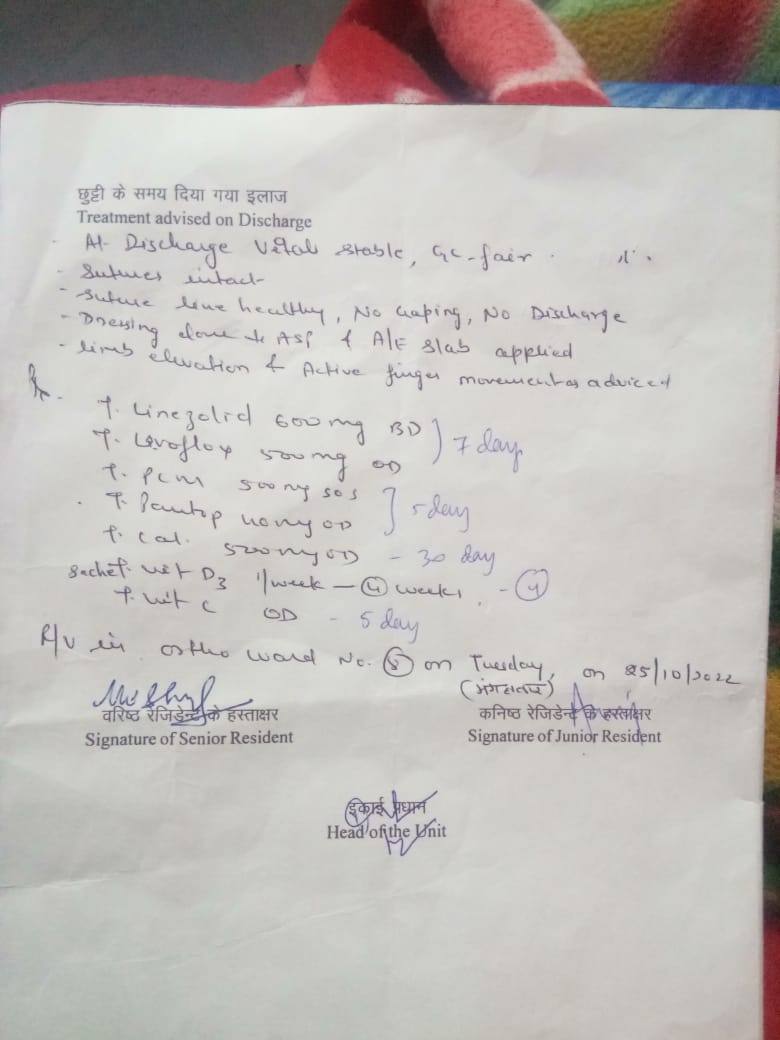 छुट्टी के समय दिया गया इलाज
Treatment advised on Discharge
At Discharge Vitals stable, GC-fair.
- Sutures intact
- Suture line healthy, No Gaping, No Discharge
- Dressing done ASP & A/E slab applied
- limb elevation & Active finger movement as adviced
Rx.
T. Linezolid 600 mg BD } 7 day
T. Levoflox 500 mg OD
T. PCM 500 mg SOS } 5 day
T. Pantop 40 mg OD
T. Cal. 500 mg OD - 30 day
Sachet. Vit D3 1/week - 4 weeks. - 4
T. Vit C OD - 5 day
R/V in ortho ward No. on Tuesday, on 25/10/2022
(मंगलवार)
वरिष्ठ रेजिडेन्ट के हस्ताक्षर
Signature of Senior Resident
कनिष्ठ रेजिडेन्ट के हस्ताक्षर
Signature of Junior Resident
इकाई प्रधान
Head of the Unit